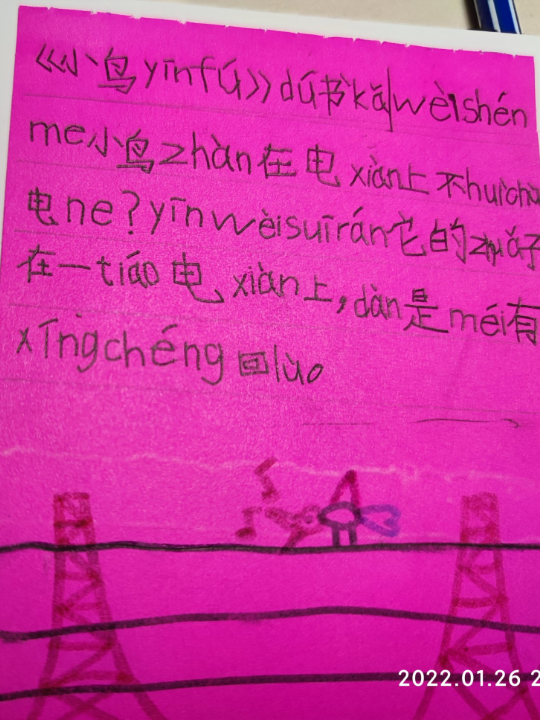 《小鸟yīnfú》dú书kǎ wèishén
me小鸟zhàn在电xiàn上不huìchù
电ne?yīnwèisuīrán它的zhuǎ子
在一tiáo电xiàn上,dàn是méi有
xíngchéng回lùo
2022.01.26 2